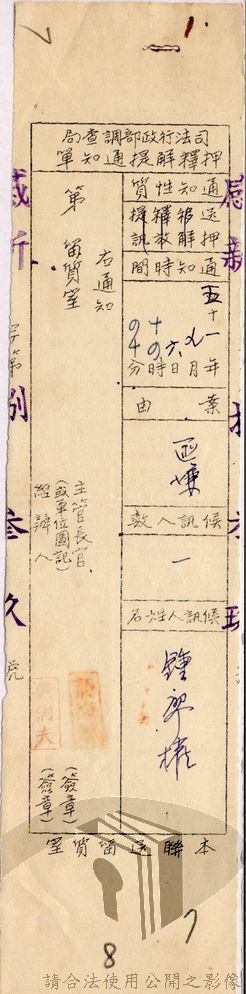 1.
司法行政部調查局
押釋解提通知單
通知性質
送押 移解 釋放 提訊
通知時間
五十一年九月六日十時分
案由
匪嫌
候訊人數
一
候訊人姓名
鍾
權
右通知
第 留質室
主管長官
(或單位圖記)
經辦人
(簽章)
(簽章)
本聯送留質室
字第
號
參
玖
7
8
請合法使用公開之影像